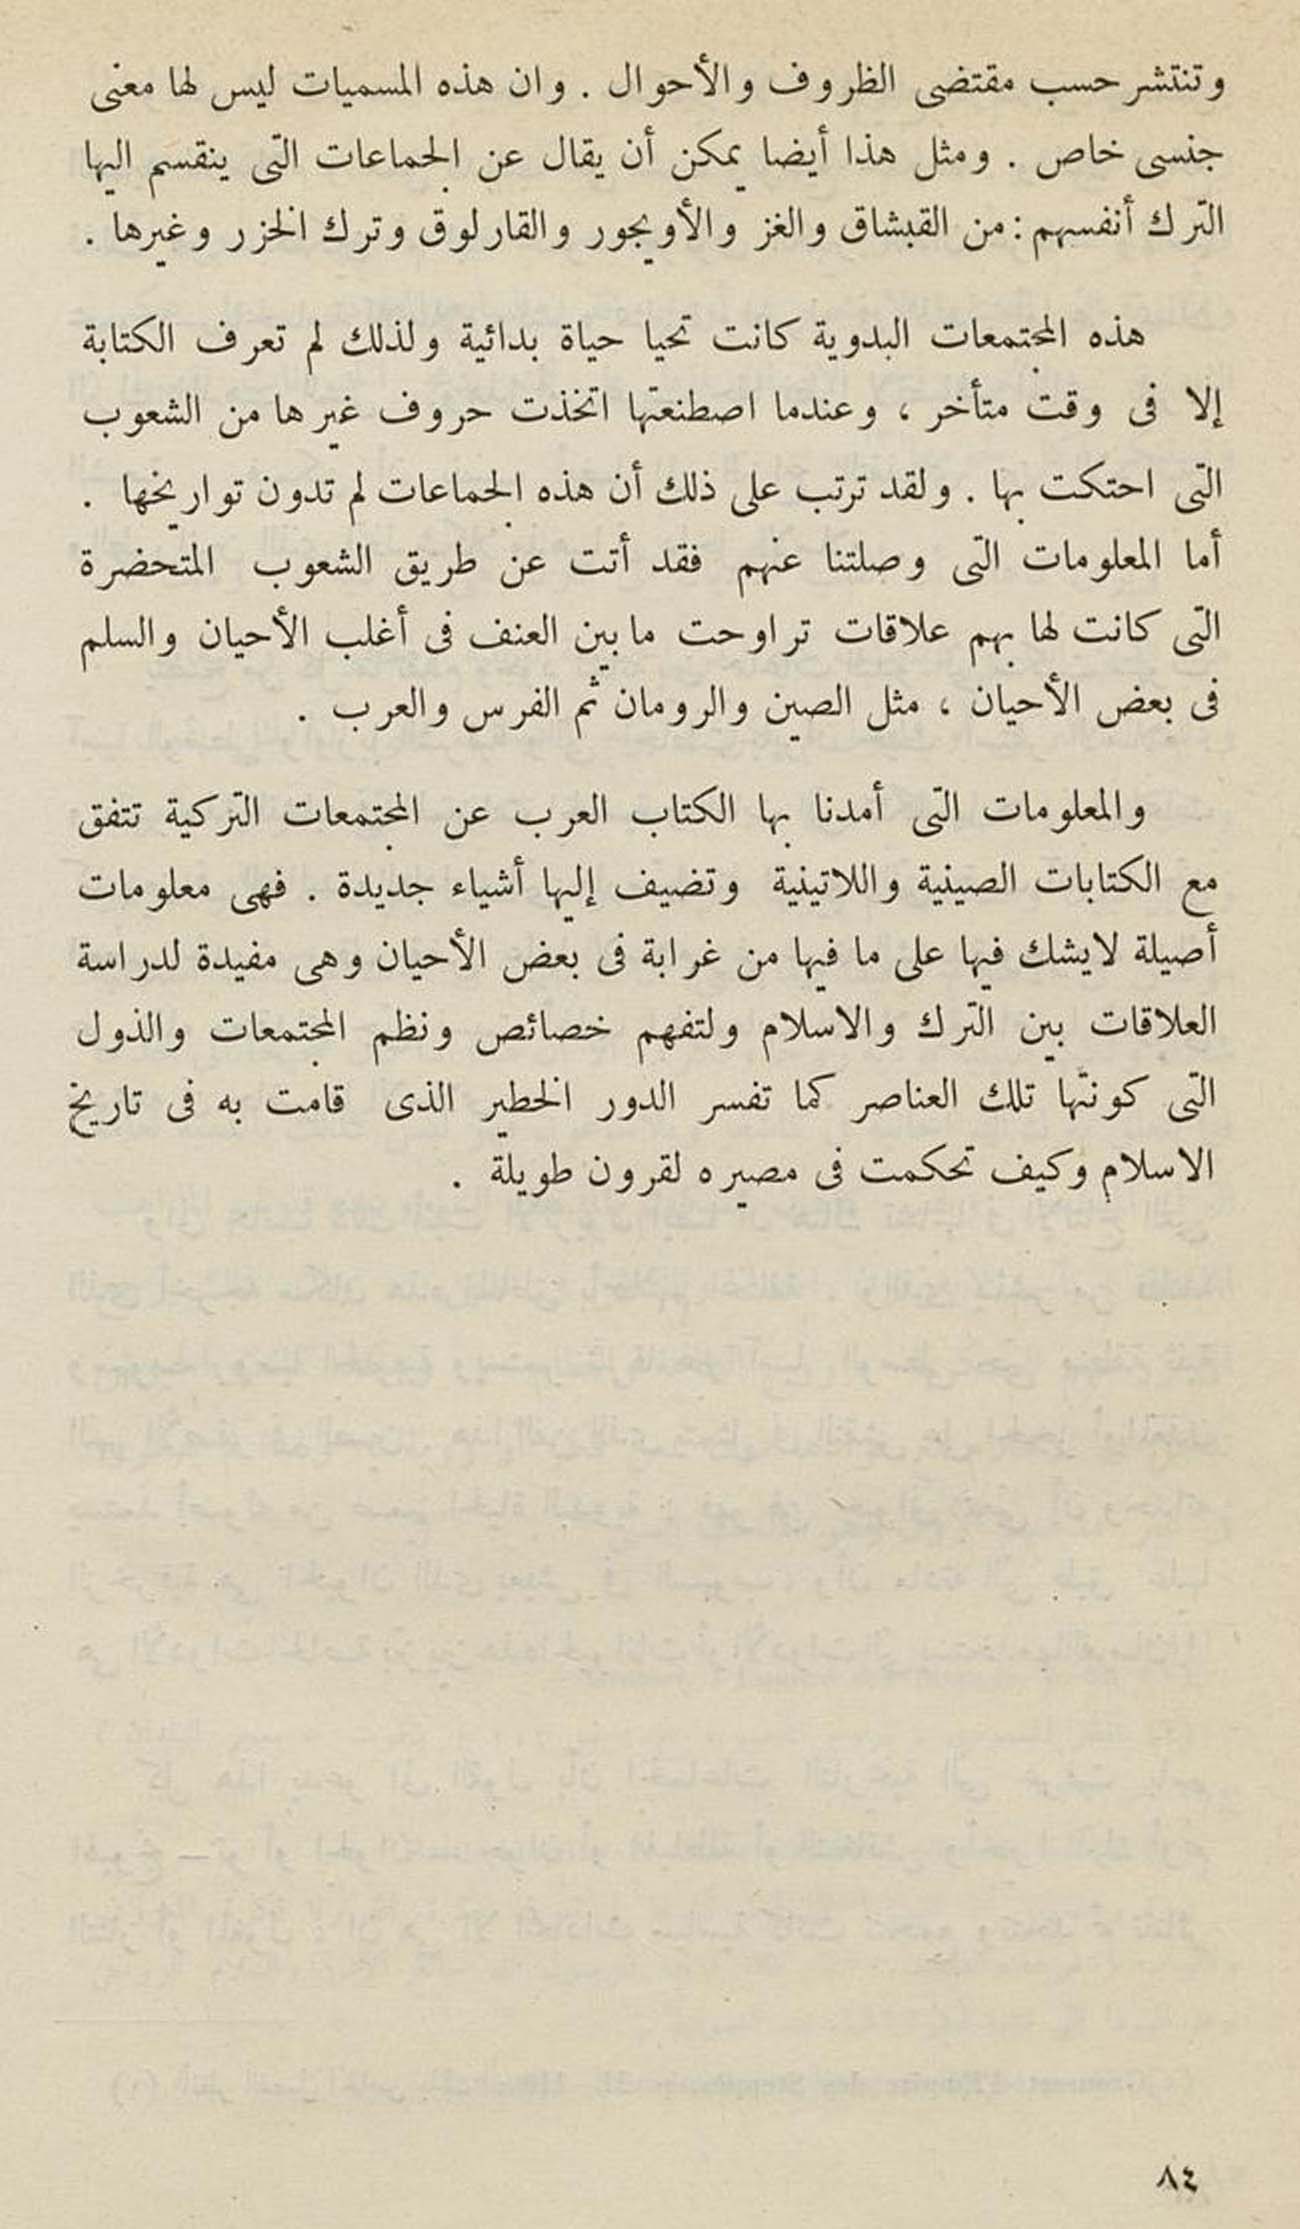 وتنتشر حسب مقتضى الظروف والأحوال . وان هذه المسميات ليس لها معنى
جنسى خاص . ومثل هذا أيضا يمكن أن يقال عن الجماعات التى ينقسم اليها
الترك أنفسهم : من القبشاق والغز والأويجور والقارلوق وترك الخزر وغيرها .
هذه المجتمعات البدوية كانت تحيا حياة بدائية ولذلك لم تعرف الكتابة
إلا فى وقت متأخر ، وعندما اصطنعتها اتخذت حروف غيرها من الشعوب
التى احتكت بها . ولقد ترتب على ذلك أن هذه الجماعات لم تدون تواريخها .
أما المعلومات التى وصلتنا عنهم فقد أتت عن طريق الشعوب المتحضرة
التى كانت لها بهم علاقات تراوحت ما بين العنف فى أغلب الأحيان والسلم
فى بعض الأحيان ، مثل الصين والرومان ثم الفرس والعرب .
والمعلومات التى أمدنا بها الكتاب العرب عن المجتمعات التركية تتفق
مع الكتابات الصينية واللاتينية وتضيف إليها أشياء جديدة . فهى معلومات
أصيلة لايشك فيها على ما فيها من غرابة فى بعض الأحيان وهى مفيدة لدراسة
العلاقات بين الترك والاسلام ولتفهم خصائص ونظم المجتمعات والذول
التى كونتها تلك العناصر كما تفسر الدور الخطير الذى قامت به فى تاريخ
الاسلام وكيف تحكمت فى مصيره لقرون طويلة .
٨٤